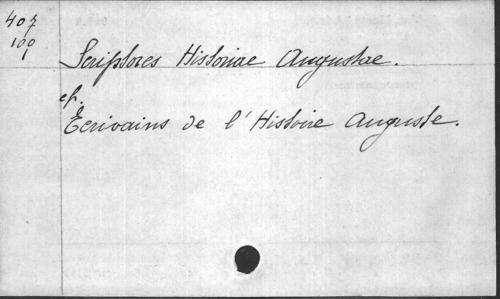 407
100
1
Scriptores Historiae Augustae.
cf.
Ecrivains de l'Histoire Auguste.